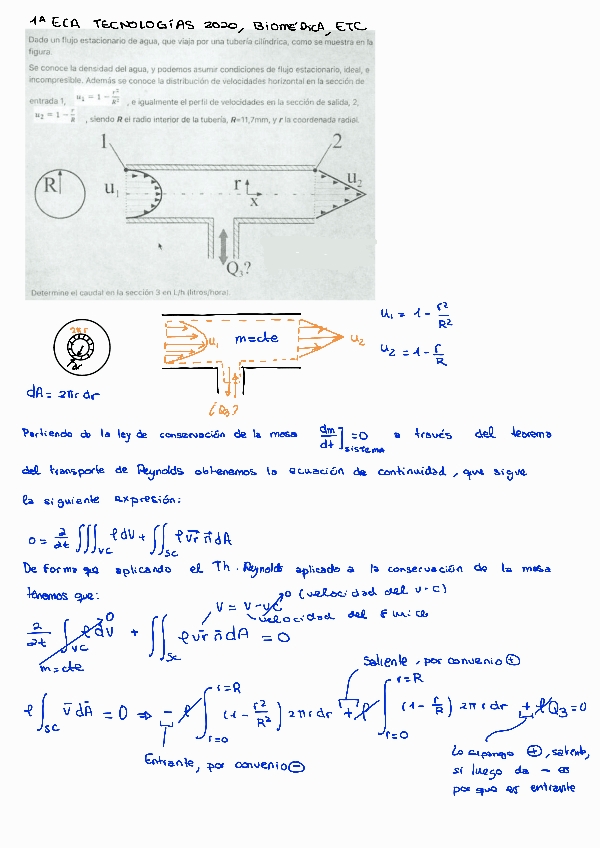 1ª ECA TECNOLOGÍAS 2020, BIOMÉDICA, ETC
Dado un flujo estacionario de agua, que viaja por una tubería cilíndrica, como se muestra en la
figura.
Se conoce la densidad del agua, y podemos asumir condiciones de flujo estacionario, ideal, e
incompresible. Además se conoce la distribución de velocidades horizontal en la sección de
entrada 1, u₁ = 1 − r²/R² , e igualmente el perfil de velocidades en la sección de salida, 2,
u₂ = 1 − r/R , siendo R el radio interior de la tubería, R=11,7mm, y r la coordenada radial.
1 2
R u₁ r x u₂
Q₃?
Determine el caudal en la sección 3 en L/h (litros/hora).
2πr dr
u₁ m=cte u₂
u₁ = 1 - r²/R²
u₂ = 1 - r/R
dA = 2πr dr
¿Q₃?
Partiendo de la ley de conservación de la masa dm/dt]sistema =0 a través del teorema
del transporte de Reynolds obtenemos la ecuación de continuidad, que sigue
la siguiente expresión:
0 = ∂/∂t ∭VC ρdV + ∬SC ρ v̄r n̄ dA
De forma que aplicando el Th. Reynolds aplicado a la conservación de la masa
tenemos que:
V = V - VC 0 (velocidad del V.C)
velocidad del
∂/∂t ∫VC ρdV 0 + ∬SC ρ v̄r n̄ dA = 0
m=cte
Saliente, por convenio ⊕
ρ ∫SC v̄ dĀ = 0 ⇒ - ρ ∫r=0 r=R (1 - r²/R²) 2πr dr + ρ ∫r=0 r=R (1 - r/R) 2πr dr + ρQ₃ = 0
Entrante, por convenio ⊖
Lo supongo ⊕, saliente,
si luego da - es
por que es entrante